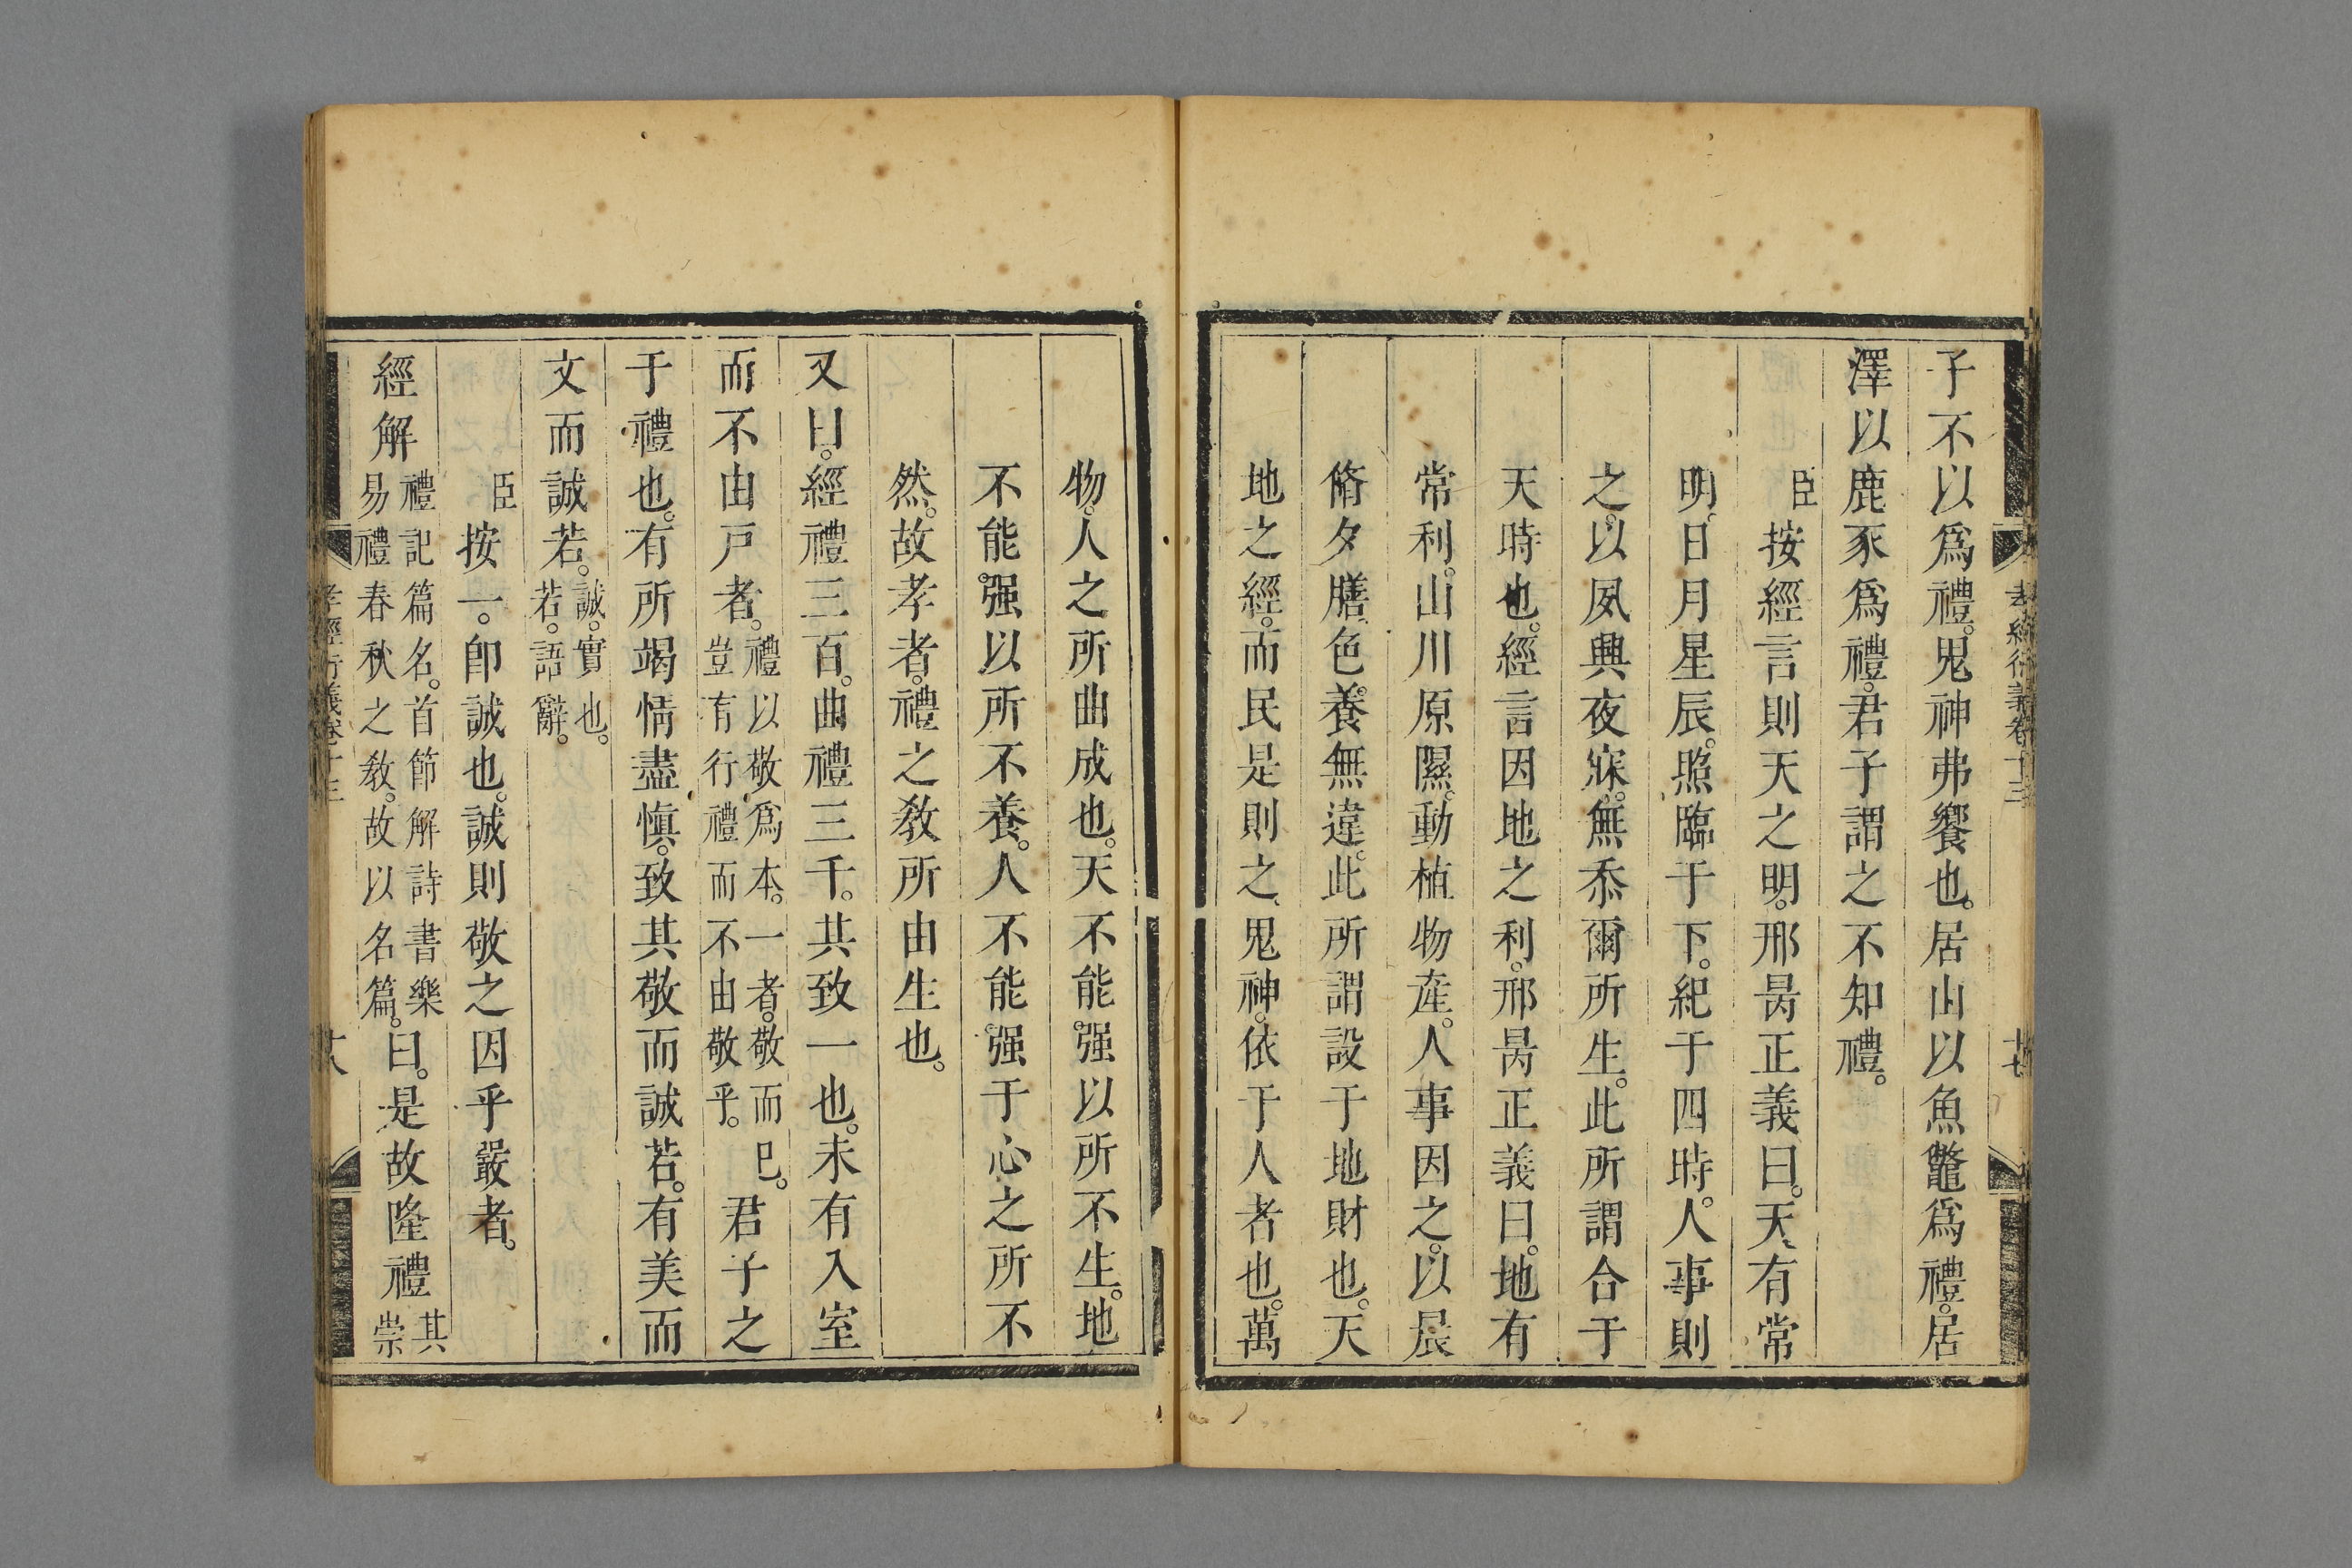 子不以爲禮。鬼神弗饗也。居山以魚鼈爲禮。居
澤以鹿豕爲禮。君子謂之不知禮。
臣按經言則天之明。邢昺正義曰。天、有常
明。日月星辰。照臨于下。紀于四時。人事則
之。以夙興夜寐。無忝爾所生。此所謂合于
天時也。經言因地之利。邢昺正義曰。地有
常利。山川原隰。動植物産。人事因之。以晨
脩夕膳。色養無違。此所謂設于地財也。天
地之經。而民是則之、鬼神。依于人者也。萬
物。人之所曲成也。天不能强以所不生。地
不能强以所不養。人不能强于心之所不
然。故孝者。禮之教所由生也。
又曰。經禮三百。曲禮三千。其致一也。未有入室
而不由戸者。禮以敬爲本。一者。敬而已。豈有行禮而不由敬乎。君子之
于禮也。有所竭情盡愼。致其敬而誠若。有美而
文而誠若。誠。實也。若。語辭。
臣按一。卽誠也。誠則敬之因乎嚴者。
經解禮記篇名。首節解詩書樂易禮春秋之教。故以名篇。曰。是故隆禮其崇
孝經衍義卷十三